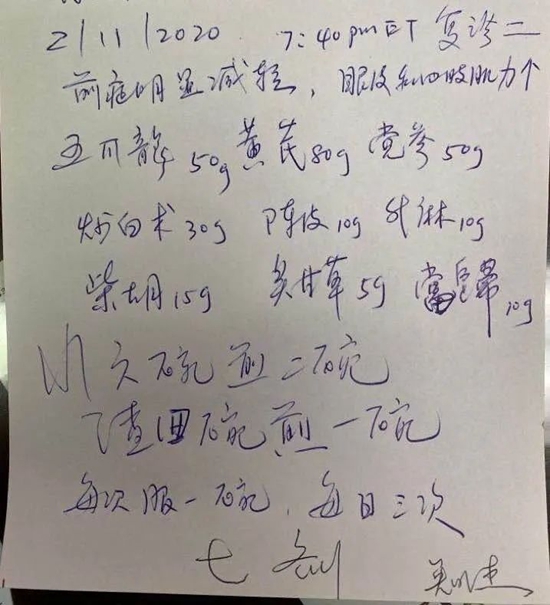 2/11/2020 7:40pm ET 复诊二
前症明显减轻，眼皮和四肢肌力个
五爪龍50g 黄芪80g 党参50g
炒白术30g 陈皮10g 升麻10g
柴胡15g 炙甘草5g 當歸10g
六碗煎二碗
渣四碗煎一碗
每次服一碗，每日三次
七剂